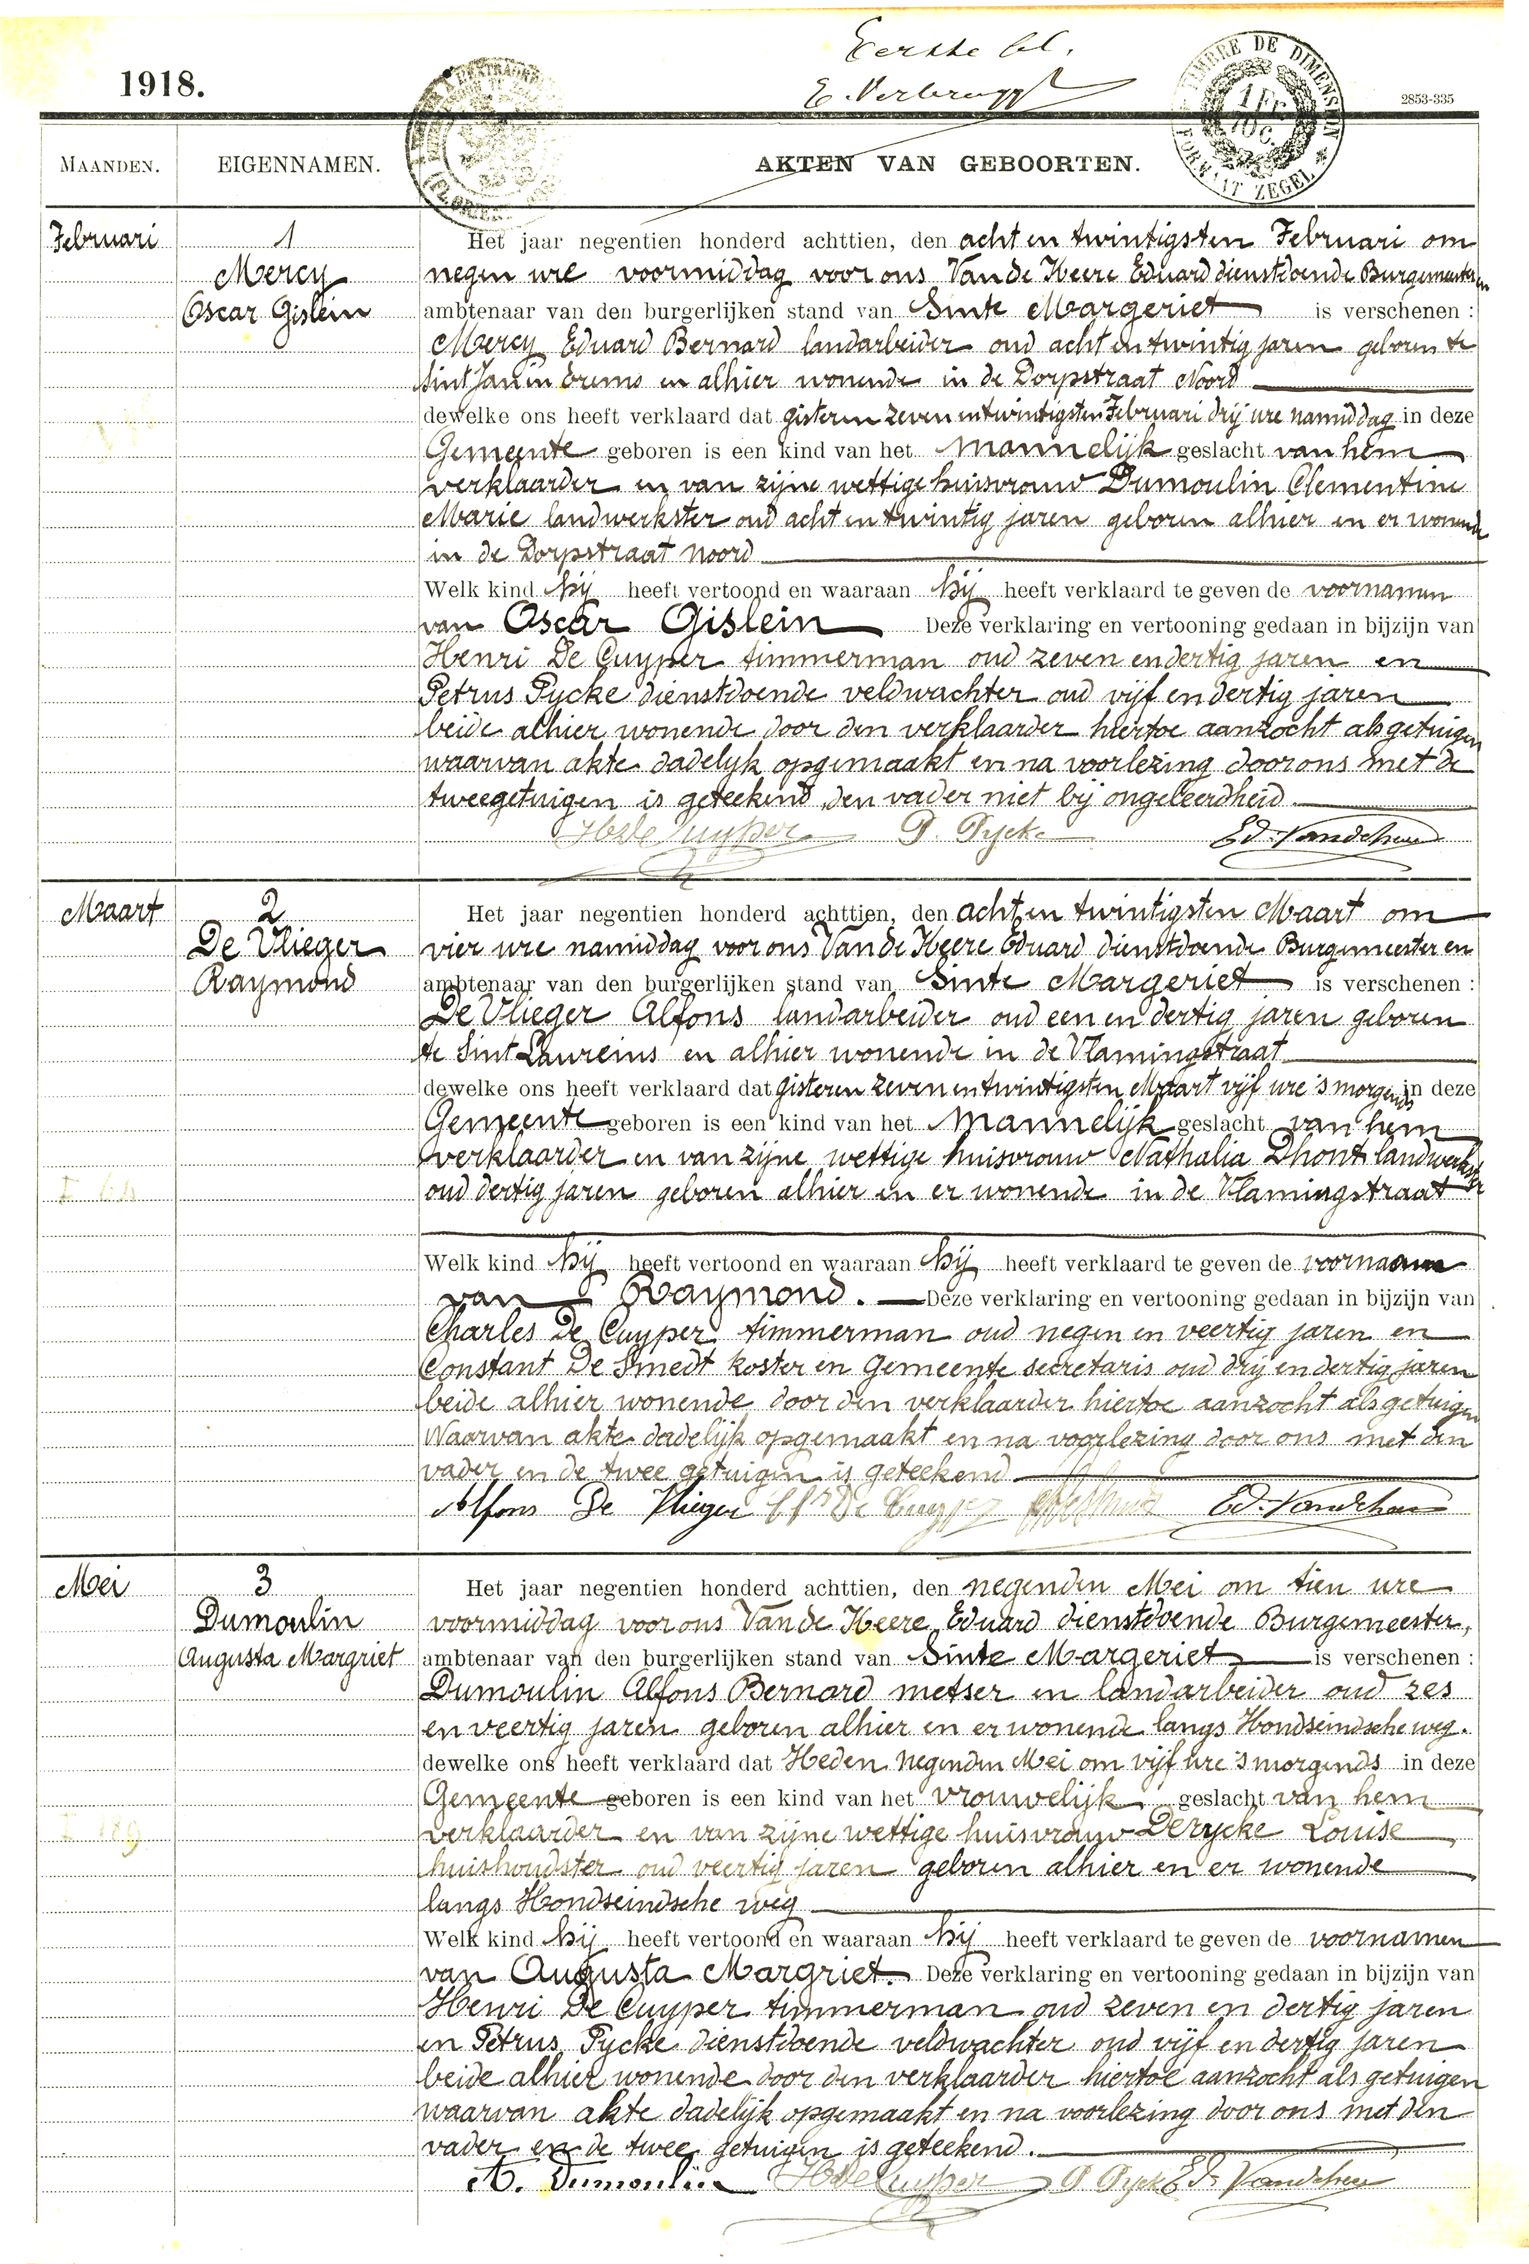 Eerste bl.
E. Verbrugghe
1918.
TIMBRE DE DIMENSION
1 FR. 10 C.
FORMAAT ZEGEL
2853-335
MAANDEN.
EIGENNAMEN.
AKTEN VAN GEBOORTEN.
Februari
1
Mercy
Oscar Gislein
Het jaar negentien honderd achttien, den acht en twintigsten Februari om
negen ure voormiddag voor ons Van de Keere Eduard dienstdoende Burgemeester en
ambtenaar van den burgerlijken stand van Sinte Margeriet is verschenen :
Mercy Eduard Bernard landarbeider oud acht en twintig jaren geboren te
Sint Jan in Eremo en alhier wonende in de Dorpstraat Noord
dewelke ons heeft verklaard dat gisteren zeven en twintigsten Februari drij ure namiddag in deze
Gemeente geboren is een kind van het mannelijk geslacht van hem
verklaarder en van zijne wettige huisvrouw Dumoulin Clementine
Marie landwerkster oud acht en twintig jaren geboren alhier en er wonende
in de Dorpstraat Noord
Welk kind hij heeft vertoond en waaraan hij heeft verklaard te geven de voornamen
van Oscar Gislein Deze verklaring en vertooning gedaan in bijzijn van
Henri De Cuyper timmerman oud zeven en dertig jaren en
Petrus Pycke dienstdoende veldwachter oud vijf en dertig jaren
beide alhier wonende door den verklaarder hiertoe aanzocht als getuigen
waarvan akte dadelyk opgemaakt en na voorlezing door ons met de
twee getuigen is geteekend, den vader niet bij ongeleerdheid
H De Cuyper P. Pycke Ed. Vandekeere
Maart
2
De Vlieger
Raymond
Het jaar negentien honderd achttien, den acht en twintigsten Maart om
vier ure namiddag voor ons Van de Keere Eduard dienstdoende Burgemeester en
ambtenaar van den burgerlijken stand van Sinte Margeriet is verschenen :
De Vlieger Alfons landarbeider oud een en dertig jaren geboren
te Sint Laureins en alhier wonende in de Vlamingstraat
dewelke ons heeft verklaard dat gisteren zeven en twintigsten Maart vijf ure 's morgends in deze
Gemeente geboren is een kind van het mannelijk geslacht van hem
verklaarder en van zijne wettige huisvrouw Nathalia Dhont landwerkster
oud dertig jaren geboren alhier en er wonende in de Vlamingstraat
Welk kind hij heeft vertoond en waaraan hij heeft verklaard te geven de voornaam
van Raymond. Deze verklaring en vertooning gedaan in bijzijn van
Charles De Cuyper timmerman oud negen en veertig jaren en
Constant De Smedt koster en Gemeente secretaris oud drij en dertig jaren
beide alhier wonende door den verklaarder hiertoe aanzocht als getuigen
Waarvan akte dadelijk opgemaakt en na voorlezing door ons met den
vader en de twee getuigen is geteekend
Alfons De Vlieger De Cuyper Ed. Vandekeere
Mei
3
Dumoulin
Augusta Margriet
Het jaar negentien honderd achttien, den negenden Mei om tien ure
voormiddag voor ons Van de Keere Eduard dienstdoende Burgemeester,
ambtenaar van den burgerlijken stand van Sinte Margeriet is verschenen :
Dumoulin Alfons Bernard metser en landarbeider oud zes
en veertig jaren geboren alhier en er wonende langs Hondseindsche weg.
dewelke ons heeft verklaard dat Heden negenden Mei om vijf ure 's morgends in deze
Gemeente geboren is een kind van het vrouwelijk geslacht van hem
verklaarder en van zijne wettige huisvrouw Derycke Louise
huishoudster oud veertig jaren geboren alhier en er wonende
langs Hondseindsche weg
Welk kind hij heeft vertoond en waaraan hij heeft verklaard te geven de voornamen
van Augusta Margriet. Deze verklaring en vertooning gedaan in bijzijn van
Henri De Cuyper timmerman oud zeven en dertig jaren
en Petrus Pycke dienstdoende veldwachter oud vijf en dertig jaren
beide alhier wonende door den verklaarder hiertoe aanzocht als getuigen
waarvan akte dadelijk opgemaakt en na voorlezing door ons met den
vader en de twee getuigen is geteekend.
A. Dumoulin H De Cuyper P Pycke Ed. Vandekeere